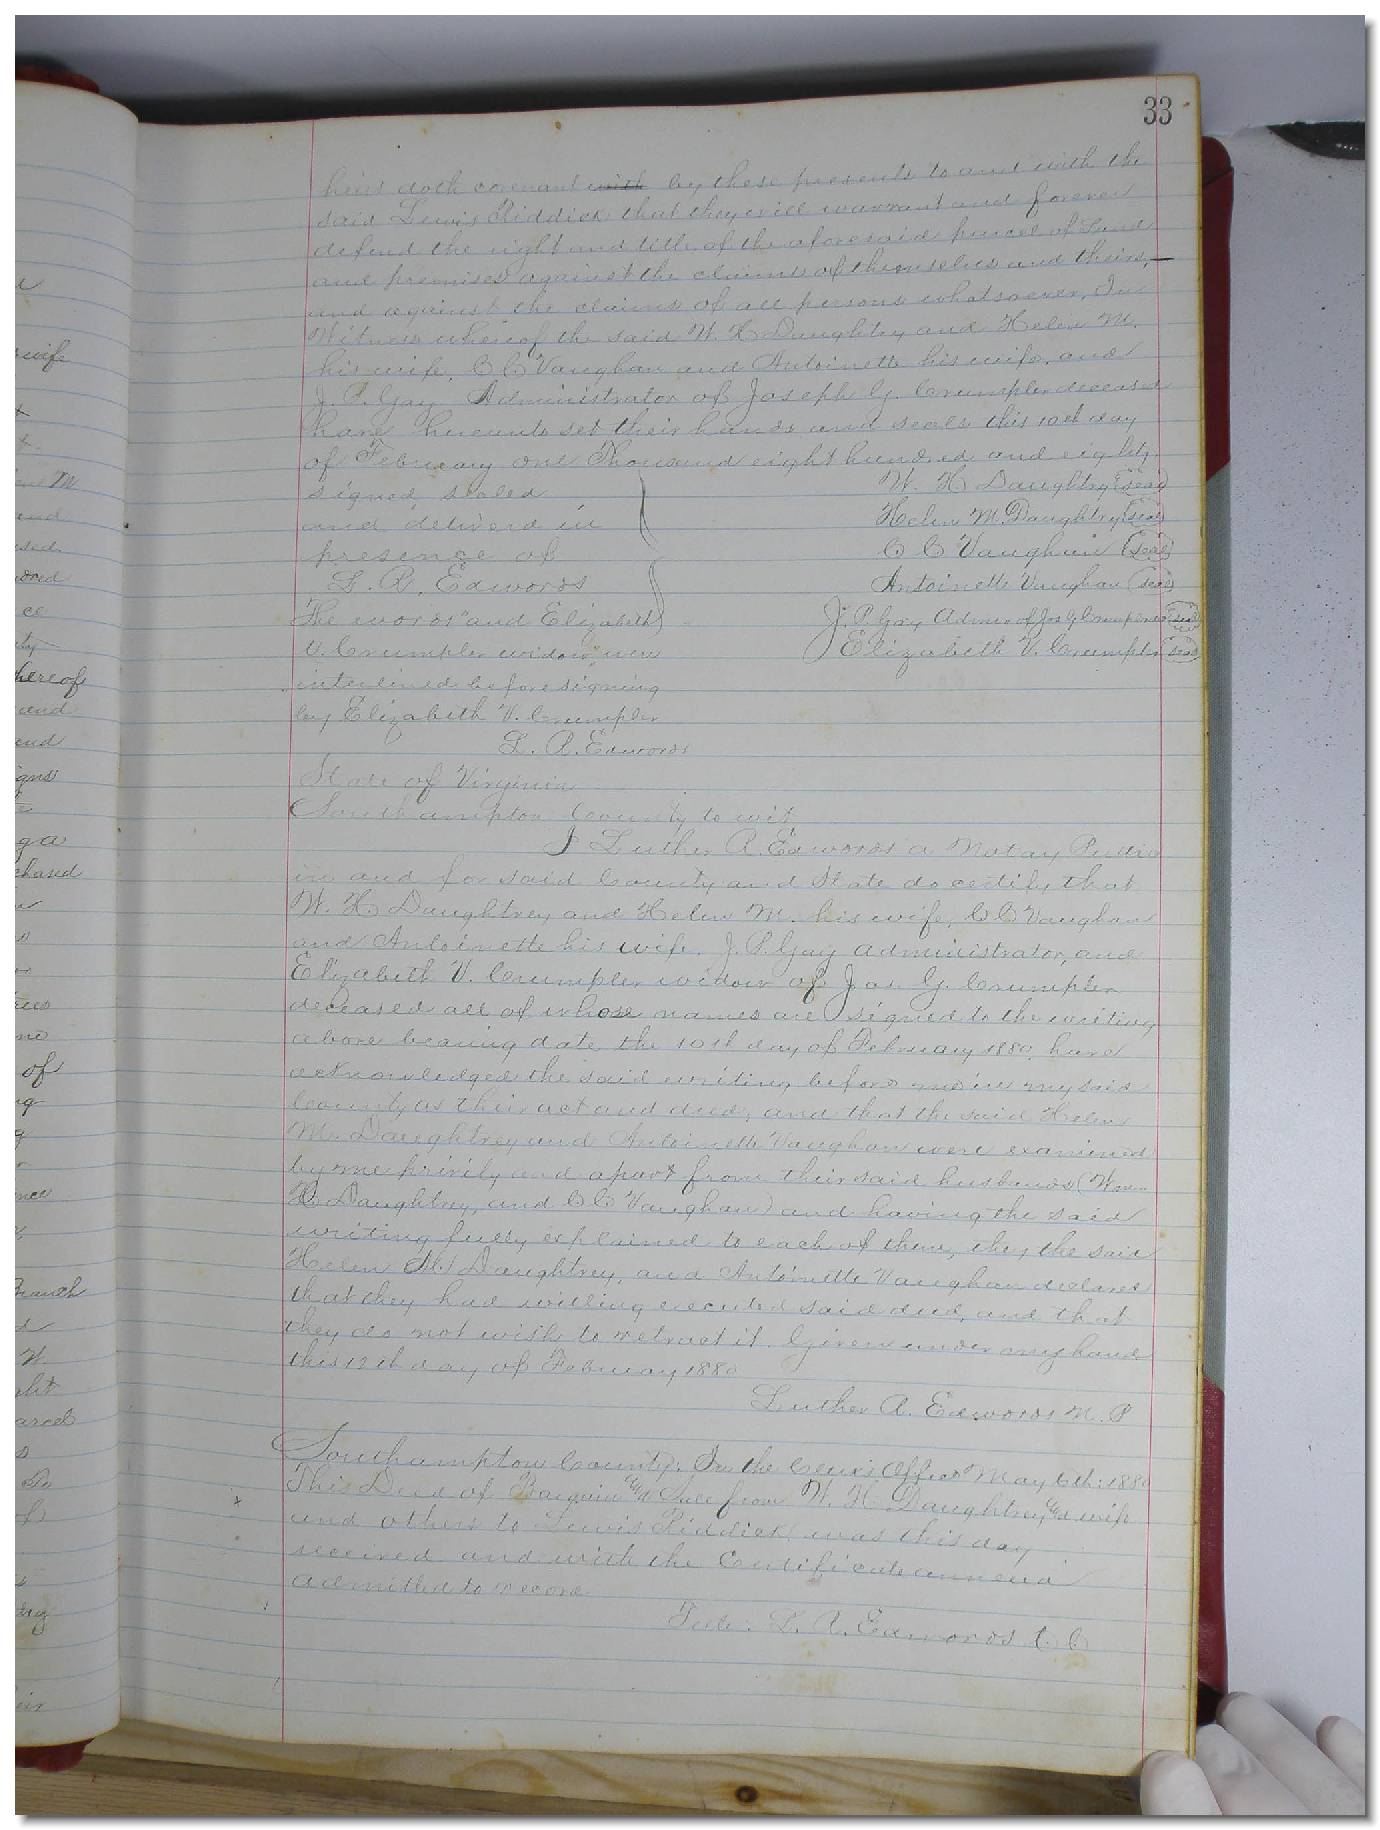 33
heirs doth covenant with by these presents to and with the
said Lewis Riddick that they will warrant and forever
defend the right and title of the aforesaid parcel of Land
and premises against the claims of themselves and theirs,—
and against the claims of all persons whatsoever, In
Witness whereof the said W. H Daughtry and Helen M.
his wife, C C Vaughan and Antoinette his wife, and
J. P. Gay Administrator of Joseph G. Crumpler deceased
have hereunto set their hands and seals this 10th day
of February one Thousand eight hundred and eighty
signed sealed W. H Daughtry (seal)
and deliverd in Helen M. Daughtry (seal)
presence of C C Vaughan (seal)
L. R. Edwards Antoinette Vaughan (seal)
The words "and Elizabeth J. P. Gay Admr of Jos G Crumpler (seal)
V. Crumpler widow" were Elizabeth V. Crumpler (seal)
interlined before signing
by Elizabeth V. Crumpler
L. R. Edwards
State of Virginia
Southampton County to wit
I Luther R. Edwards a Notary Public
in and for said County and State do certify that
W. H Daughtrey and Helen M. his wife, C C Vaughan
and Antoinette his wife, J. P. Gay administrator, and
Elizabeth V. Crumpler widow of Jos. G. Crumpler
deceased all of whose names are signed to the writing
above bearing date the 10th day of February 1880 have
acknowledged the said writing before me in my said
County as their act and deed, and that the said Helen
M. Daughtrey and Antoinette Vaughan were examined
by me privily and apart from their said husbands (Wm
H Daughtrey, and C C Vaughan) and having the said
writing fully explained to each of them, they the said
Helen M. Daughtrey, and Antoinette Vaughan declared
that they had willing executed said deed, and that
they do not wish to retract it. Given under my hand
this 12th day of February 1880
Luther R. Edwards N. P
Southampton County: In the Clerk's Office May 6th: 1880
This Deed of Bargain and Sale from W. H Daughtrey and wife
and others to Lewis Riddick was this day
received and with the Certificate annexed
admitted to record
Teste. L. R. Edwards C. C
wife
hereof
and
and
of
chased